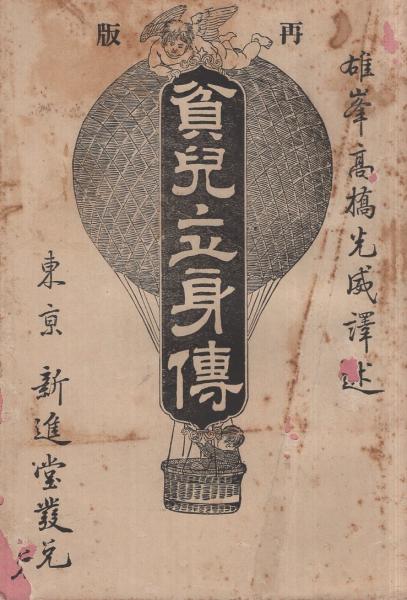 再版
雄峯高橋光威譯述
貧兒立身傳
東京 新進堂發兌